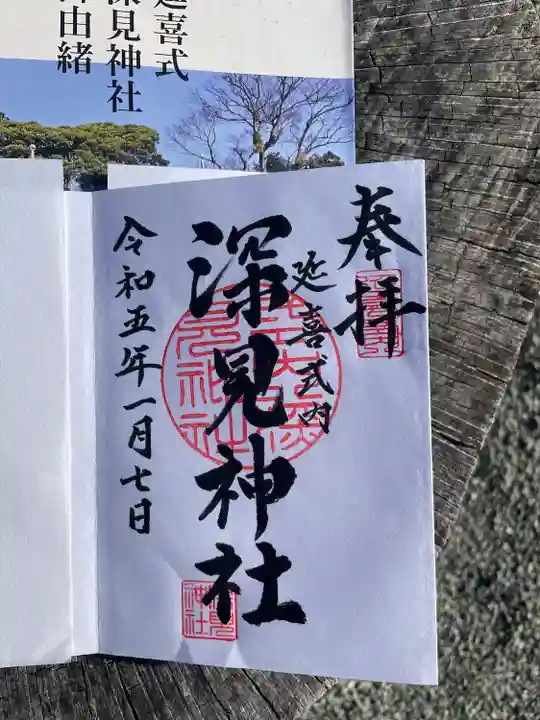 延喜式
深見神社
由緒
奉拝
延喜式内
深見神社
令和五年一月七日